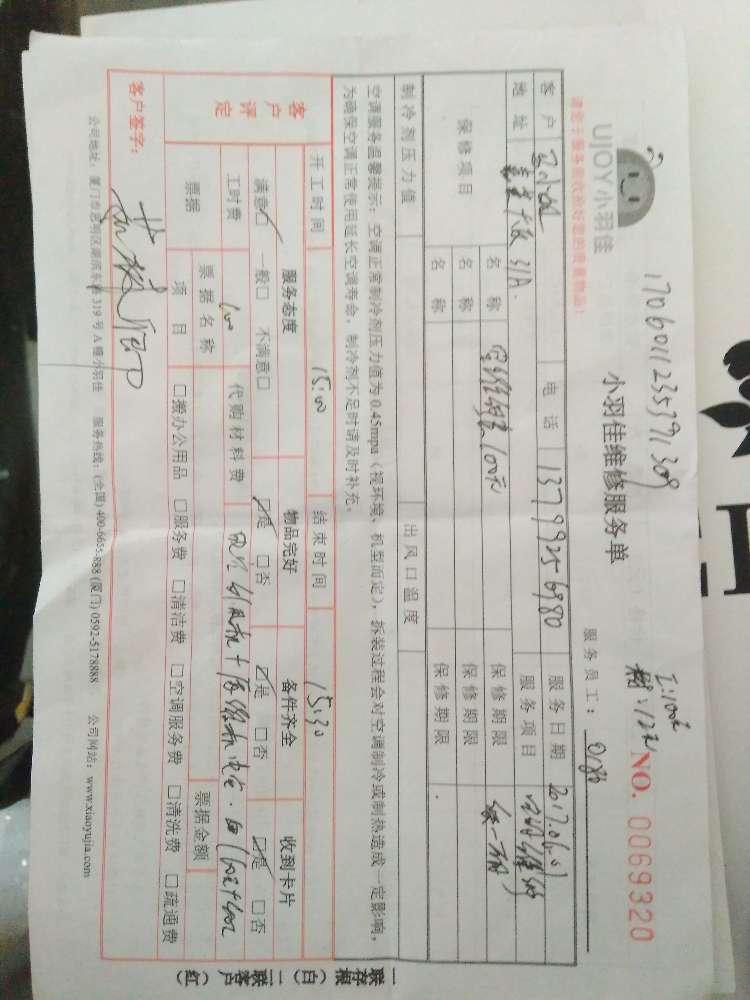 17060112353971309
UJOY小羽佳
小羽佳维修服务单
NO. 0069320
请您于服务前收拾好您的贵重物品!
服务员工:
客户 电话 13799256980 服务日期 2017.06.01
地址 31A. 服务项目 空调维修
保修项目 名称 100元 保修期限
名称 保修期限
名称 保修期限
制冷剂压力值 出风口温度
空调服务温馨提示:空调正常制冷剂压力值为0.45mpa(视环境、机型而定),拆装过程会对空调制冷或制热造成一定影响,
为确保空调正常使用延长空调寿命,制冷剂不足时请及时补充。
开工时间 15:00 结束时间 15:30
客户评定 服务态度 物品完好 备件齐全 收到卡片
满意☑ 一般□ 不满意□ ☑是 □否 ☑是 □否 ☑是 □否
工时费 100 代购材料费
票据 票据名称 票据金额
项目 □搬办公用品 □服务费 □清洁费 □空调服务费 □清洗费 □疏通费
客户签字:
公司地址:厦门市思明区湖滨东路319号A幢小羽佳 服务热线:(全国) 400-6655-888 (厦门) 0592-5178888 公司网站:www.xiaoyujia.com
一联存根(白) 二联客户(红)